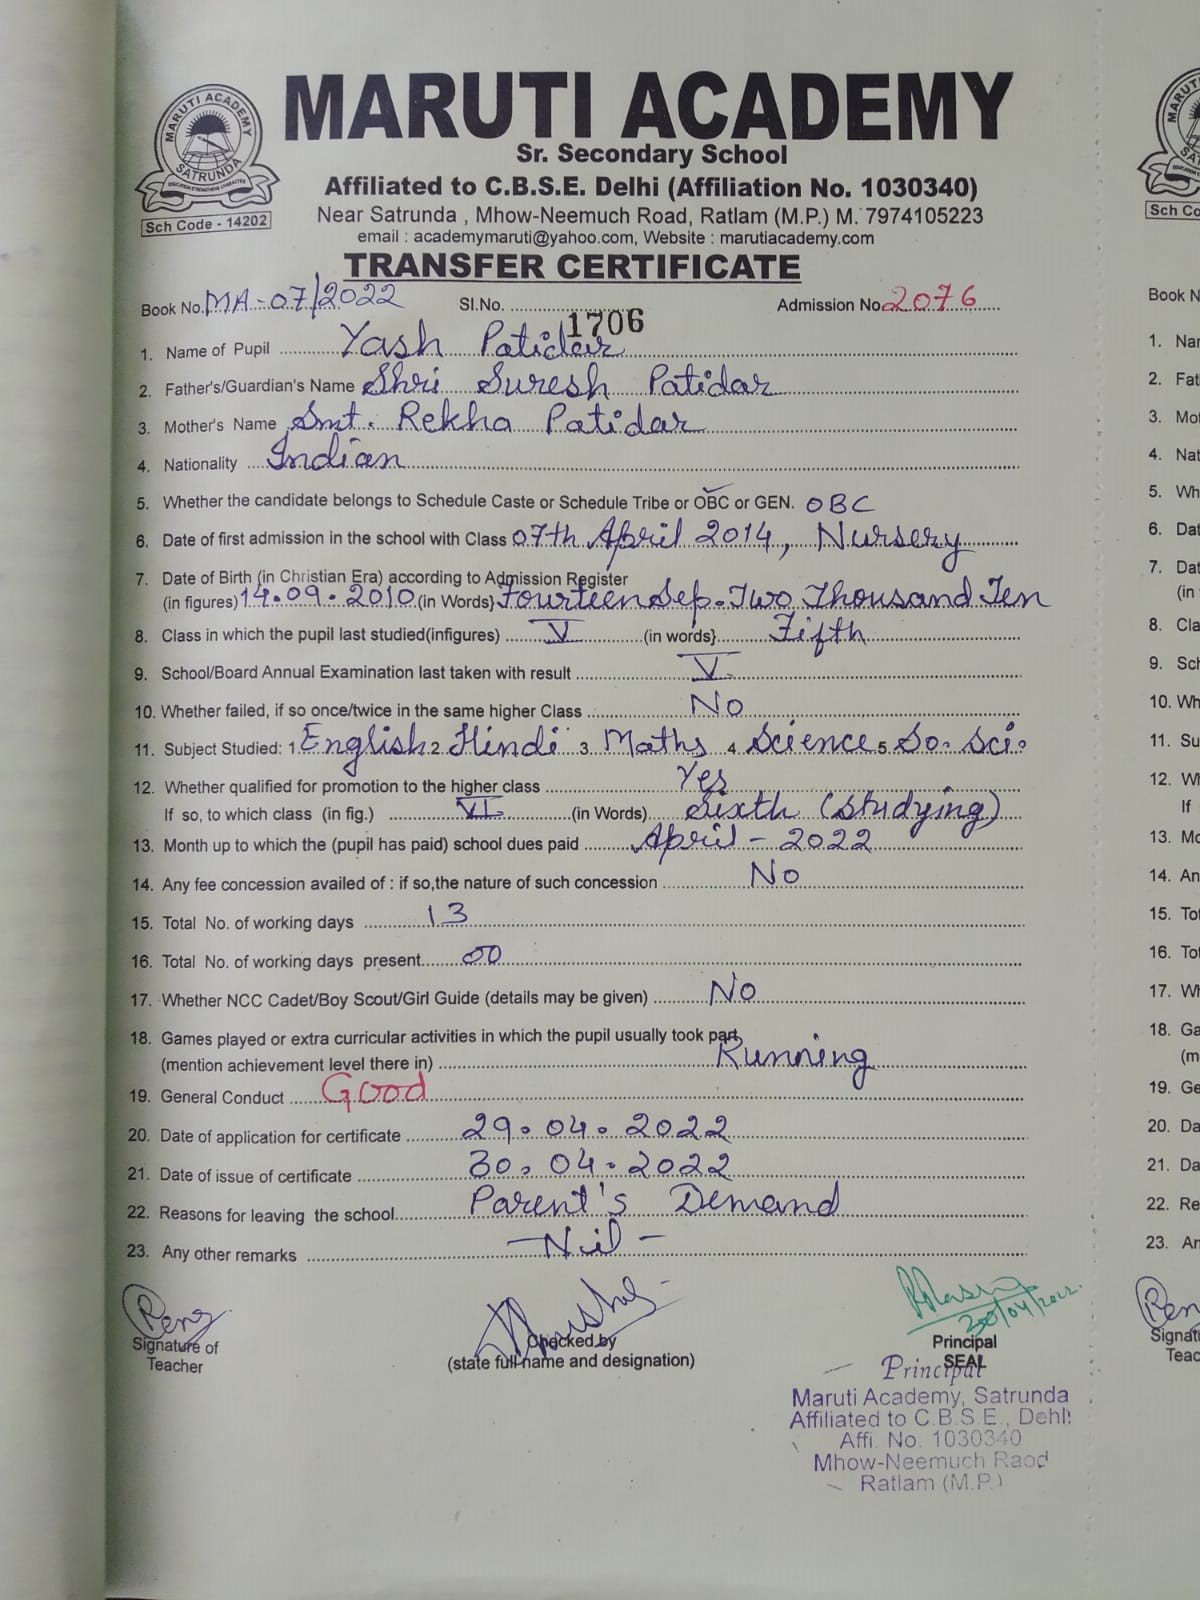 MARUTI ACADEMY
SATRUNDA
EDUCATION STRENGTHENS CHARACTER
Sch Code - 14202
MARUTI ACADEMY
Sr. Secondary School
Affiliated to C.B.S.E. Delhi (Affiliation No. 1030340)
Near Satrunda , Mhow-Neemuch Road, Ratlam (M.P.) M. 7974105223
email : academymaruti@yahoo.com, Website : marutiacademy.com
TRANSFER CERTIFICATE
Book No. MA-07/2022 Sl.No. 1706 Admission No 2076
1. Name of Pupil Yash Patidar
2. Father's/Guardian's Name Shri Suresh Patidar
3. Mother's Name Smt. Rekha Patidar
4. Nationality Indian
5. Whether the candidate belongs to Schedule Caste or Schedule Tribe or OBC or GEN. OBC
6. Date of first admission in the school with Class 07th April 2014, Nursery
7. Date of Birth (in Christian Era) according to Admission Register
(in figures) 14.09.2010 (in Words} Fourteen Sep. Two Thousand Ten
8. Class in which the pupil last studied(infigures) V (in words} Fifth
9. School/Board Annual Examination last taken with result V
10. Whether failed, if so once/twice in the same higher Class No
11. Subject Studied: 1. English 2. Hindi 3. Maths 4. Science 5. So. Sci.
12. Whether qualified for promotion to the higher class Yes
If so, to which class (in fig.) VI (in Words) Sixth (Studying)
13. Month up to which the (pupil has paid) school dues paid April - 2022
14. Any fee concession availed of : if so,the nature of such concession No
15. Total No. of working days 13
16. Total No. of working days present 00
17. Whether NCC Cadet/Boy Scout/Girl Guide (details may be given) No
18. Games played or extra curricular activities in which the pupil usually took part
(mention achievement level there in) Running
19. General Conduct Good
20. Date of application for certificate 29.04.2022
21. Date of issue of certificate 30.04.2022
22. Reasons for leaving the school Parent's Demand
23. Any other remarks - Nil -
30/04/2022
Signature of
Teacher
Checked by
(state full name and designation)
Principal
SEAL
Principal
Maruti Academy, Satrunda
Affiliated to C.B.S.E., Dehli
Affi. No. 1030340
Mhow-Neemuch Raod
Ratlam (M.P.)
Sch C
Book N
1. Nar
2. Fat
3. Mo
4. Nat
5. Wh
6. Dat
7. Dat
(in
8. Cla
9. Sch
10. Wh
11. Su
12. Wh
If
13. Mo
14. An
15. To
16. To
17. Wh
18. Ga
(m
19. Ge
20. Da
21. Da
22. Re
23. An
Signat
Teac